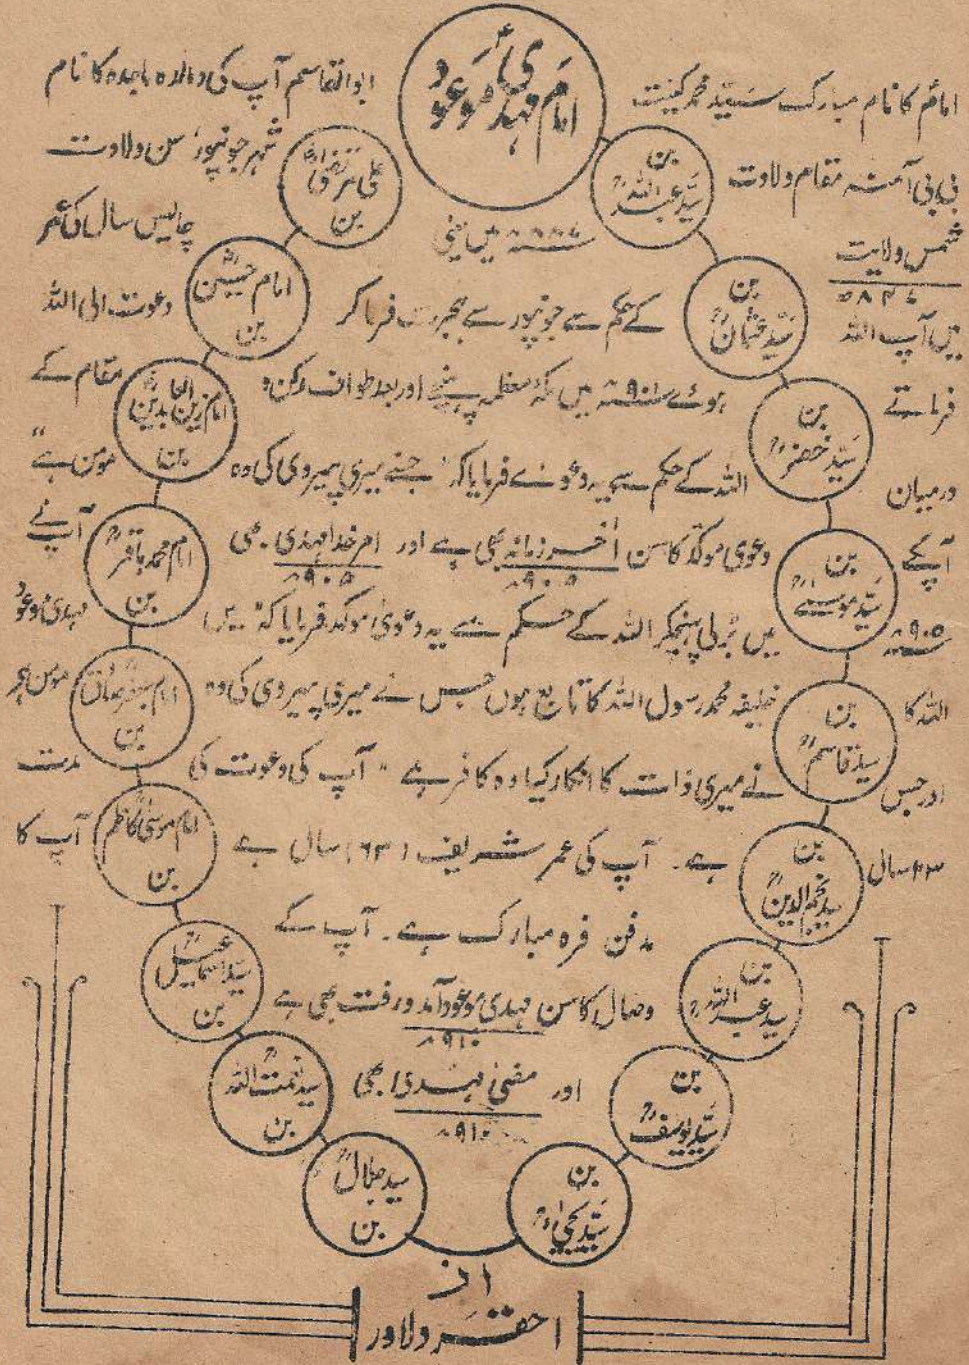 امام مہدی موعودؑ
امامؑ کا نام مبارک سید محمد کنیت ابوالقاسم آپ کی والدہ ماجدہ کا نام
بی بی آمنہ مقام ولادت شہر جونپور سن ولادت
شمس ولایت ۸۴۷ھ
۸۸۷ھ میں یعنی چالیس سال کی عمر
میں آپ اللہ کے حکم سے جونپور سے ہجرت فرما کر دعوت الی اللہ
فرماتے ہوئے ۹۰۱ھ میں مکہ معظمہ پہنچے اور بعد طواف رکن و مقام کے
درمیان اللہ کے حکم سے یہ دعویٰ فرمایا کہ "جسنے میری پیروی کی وہ مومن ہے"
آپکے دعویٰ موکد کا سن اٰخر زمانہ بھی ہے اور امر خدا مہدی بھی آپنے
۹۰۵ھ
۹۰۵ھ
۹۰۵ھ میں بڑلی پہنچکر اللہ کے حکم سے یہ دعویٰ موکد فرمایا کہ "میں مہدی موعود
اللہ کا خلیفہ محمد رسول اللہ کا تابع ہوں جس نے میری پیروی کی وہ مومن ہے
اور جس نے میری ذات کا انکار کیا وہ کافر ہے" آپ کی دعوت کی مدت
۲۳ سال ہے۔ آپ کی عمر شریف (۶۳) سال ہے آپ کا
مدفن فرہ مبارک ہے۔ آپ کے
وصال کا سن مہدی موعود آمد و رفت بھی ہے
۹۱۰ھ
اور مضیٰ مہدی بھی
۹۱۰ھ
بن سید عبداللہؒ
بن سید عثمانؒ
بن سید خضرؒ
بن سید موسیٰؒ
بن سید قاسمؒ
بن سید نجم الدینؒ
بن سید عبداللہؒ
بن سید یوسفؒ
بن سید یحییٰؒ
سید جلالؒ بن
سید نعمت اللہؒ بن
سید اسماعیلؒ بن
امام موسیٰ کاظمؒ بن
امام جعفر صادقؒ بن
امام محمد باقرؒ بن
امام زین العابدینؓ بن
امام حسینؓ بن
علی مرتضیٰؓ بن
از
احقر دلاور